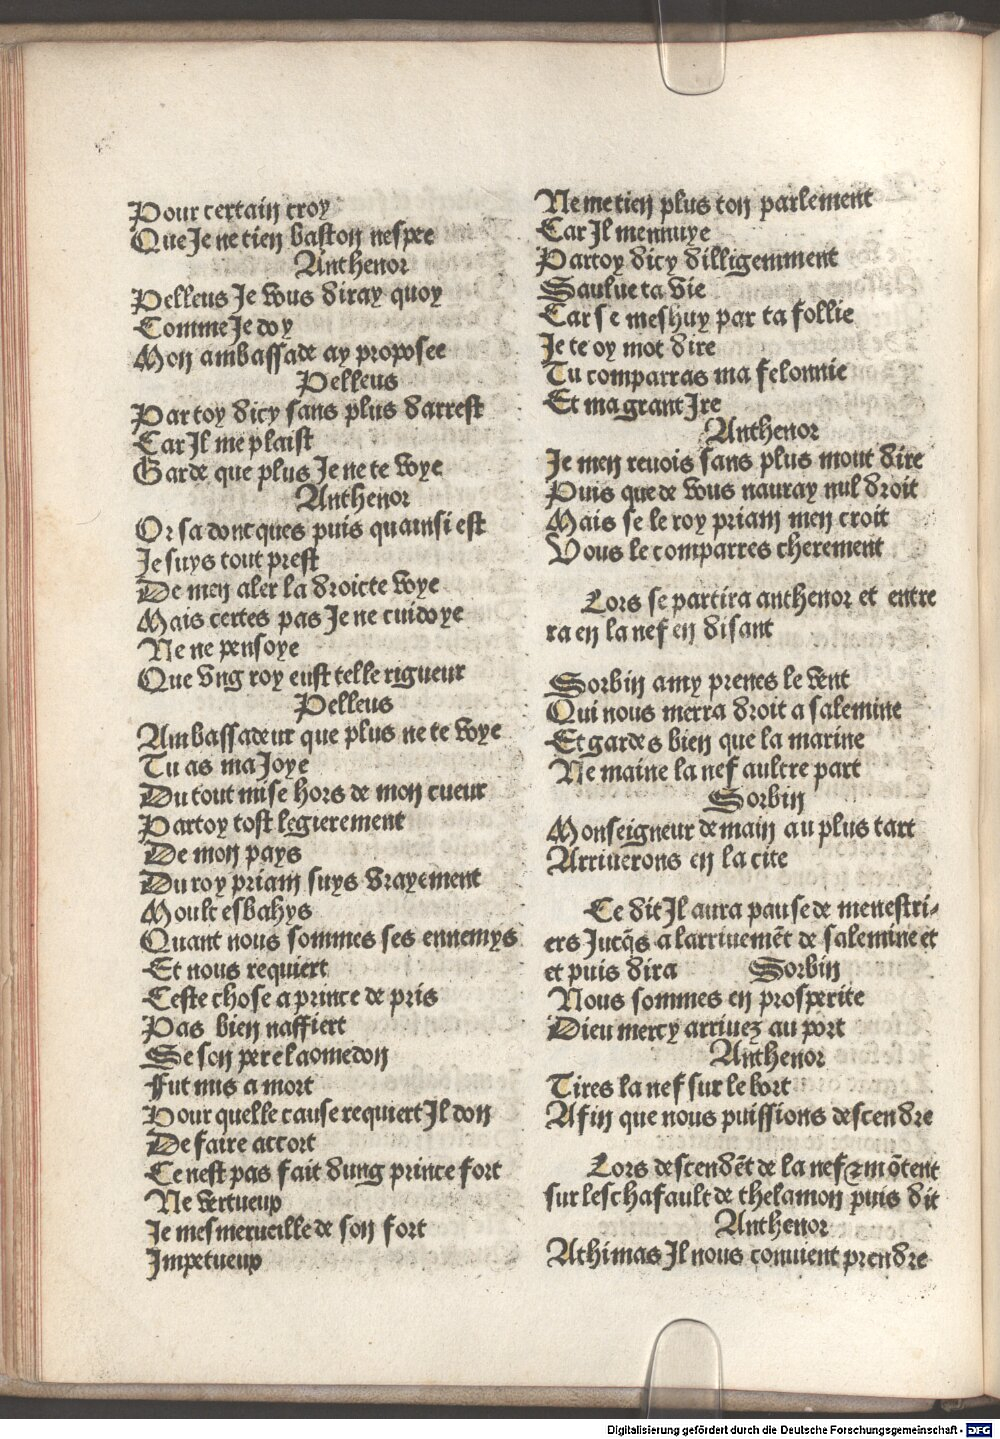 Pour certain croy
Que Je ne tien baston nespee
Anthenor
Pelleus Je vous diray quoy
Comme Je doy
Mon ambassade ay proposee
Pelleus
Partoy dicy sans plus darrest
Car Jl me plaist
Garde que plus Je ne te voye
Anthenor
Or sa doncques puis quainsi est
Je suys tout prest
De men aler la droicte voye
Mais certes pas Je ne cuidoye
Ne ne pensoye
Que vng roy eust telle rigueur
Pelleus
Ambassadeur que plus ne te voye
Tu as ma Joye
Du tout mise hors de mon cueur
Partoy tost legierement
De mon pays
Du roy priam suys vrayement
Moult esbahys
Quant nous sommes ses ennemys
Et nous requiert
Ceste chose a prince de pris
Pas bien naffiert
Se son pere laomedon
Fut mis a mort
Pour quelle cause requiert Jl don
De faire accort
Ce nest pas fait dung prince fort
Ne vertueux
Je mesmerueille de son fort
Jmpetueux
Ne me tien plus ton parlement
Car Jl mennuye
Partoy dicy dilligemment
Saulue ta vie
Car se meshuy par ta follie
Je te oy mot dire
Tu comparras ma felonnie
Et ma grant Jre
Anthenor
Je men reuois sans plus mout dire
Puis que de vous nauray nul droit
Mais se le roy priam men croit
Vous le comparres cherement
Lors se partira anthenor et entre
ra en la nef en disant
Sorbin amy prenes le vent
Qui nous merra droit a salemine
Et gardes bien que la marine
Ne maine la nef aultre part
Sorbin
Monseigneur demain au plus tart
Arriuerons en la cite
Ce dit Jl aura pause de menestri-
ers Jucq̄s a larriuemēt de salemine et
et puis dira Sorbin
Nous sommes en prosperite
Dieu mercy arriuez au port
Anthenor
Tires la nef sur le bort
Afin que nous puissions descendre
Lors descendēt de la nef ⁊ mōtent
sur leschafault de thelamon puis dit
Anthenor
Athimas Jl nous conuient prendre
Digitalisierung gefördert durch die Deutsche Forschungsgemeinschaft - DFG